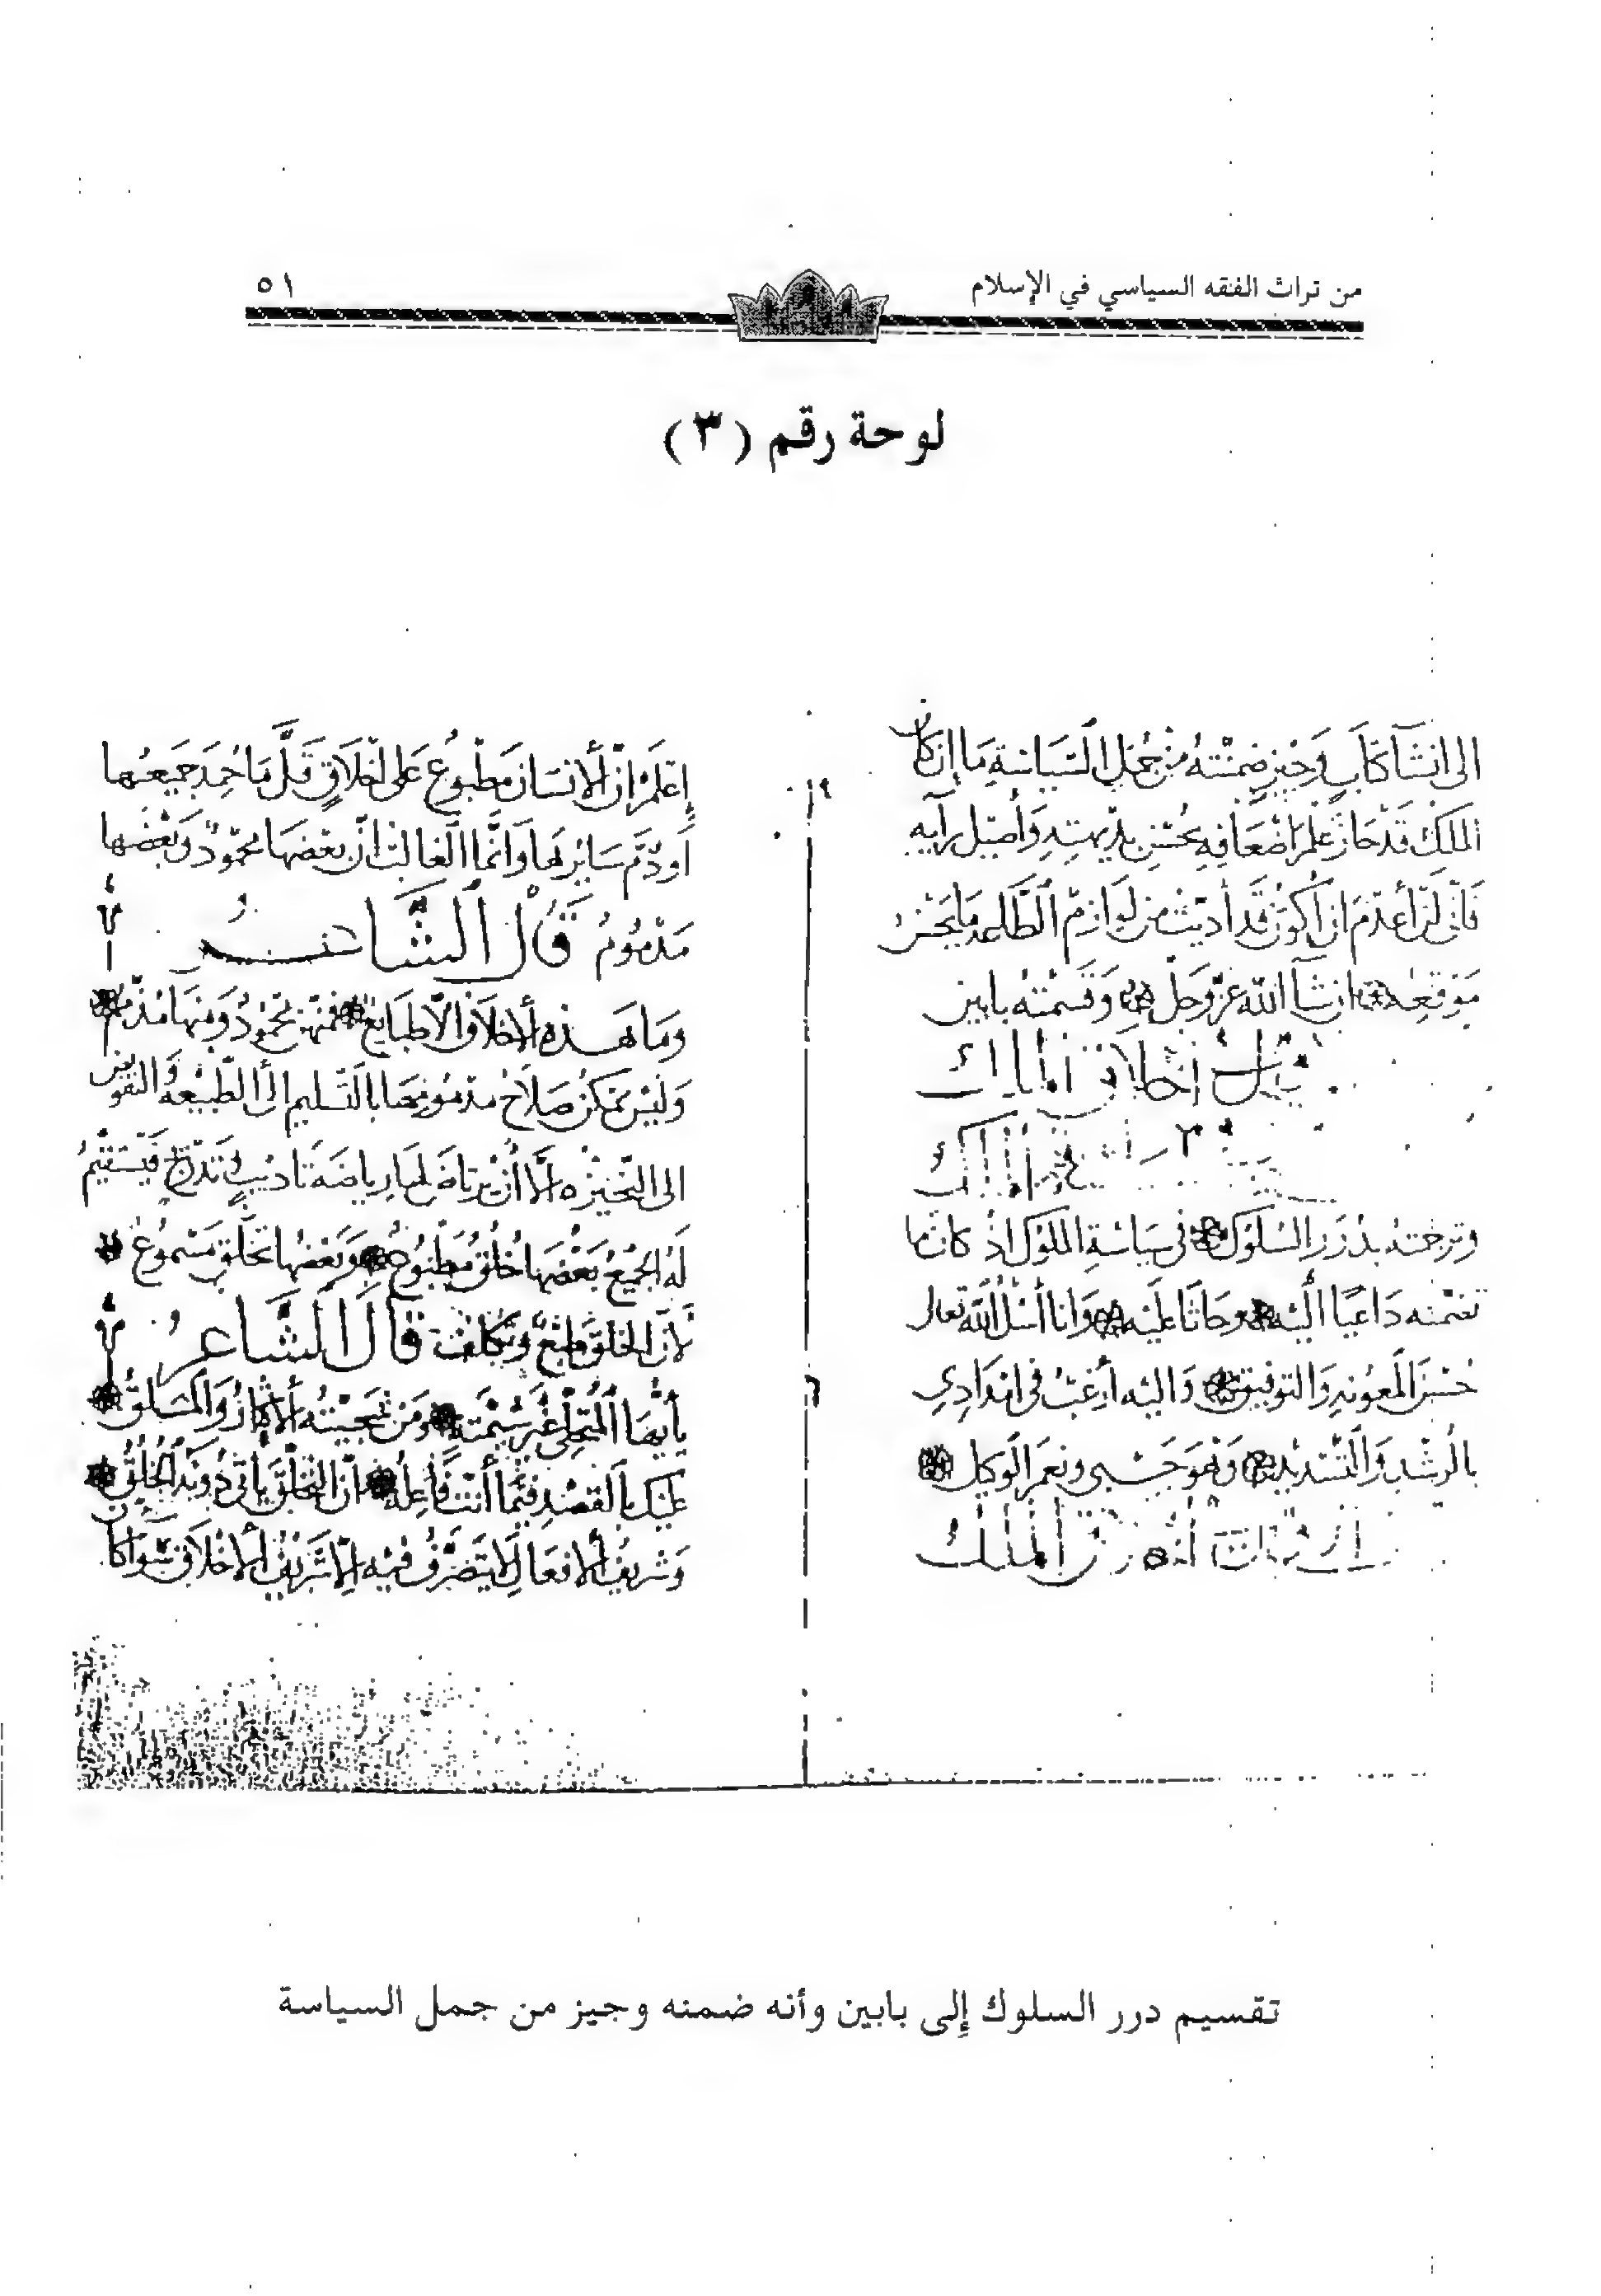 من تراث الفقه السياسي في الإسلام
٥١
لوحة رقم (٣)
الى انشآ كتاب وجيز ضمنته من جمل السياسة ما ان كان
الملك قد حاز علم اضعافه بحسن بديهته وأصيل رآيه
فانى لن أعدم ان أكون قد أديت من لوازم الطاعه ما يحسن
موقعه ان شآ الله عز وجل وقسمته بابين
اخلاق الملك
الملك
وترجمته بدرر السلوك فى سياسة الملوك اذ كان ما
تضمنه داعيا اليه وحاثا عليه وانا أسل الله تعالى
حسن المعونه والتوفيق واليه أرغب فى امدادي
بالرشد والتسديد وهو حسبى ونعم الوكيل
الملك
إعلم ان الانسان مطبوع على اخلاق قل ما حمد جميعها
أو ذم سايرها وانما الغالب ان بعضها محمود وبعضها
مذموم قال الشاعر
وما هذه الاخلاق الا طبايع فمنهن محمود ومنها مذمم
وليس يمكن صلاح مذمومها بالتسليم الى الطبيعه والتفويض
الى النحيزه الا أن يرتاض لها رياضة تاديب وتدريج فيستقيم
له الجميع بعضها خلق مطبوع وبعضها تخلق مسموع
لان الخلق طبع وتكلف قال الشاعر
يأيها المتحلى غير شيمته ومن سجيته الاكثار والملق
عليك بالقصد فيما أنت فاعله ان التخلق يأتى دونه الخلق
وشريف الافعال لا يتصرف فيه الا شريف الاخلاق سوآ كان
تقسيم درر السلوك إلى بابين وأنه ضمنه وجيز من جمل السياسة